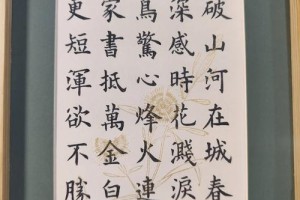 破山河在城春
深感時花濺淚
鳥驚心烽火連
家書抵萬金白
更短渾欲不勝